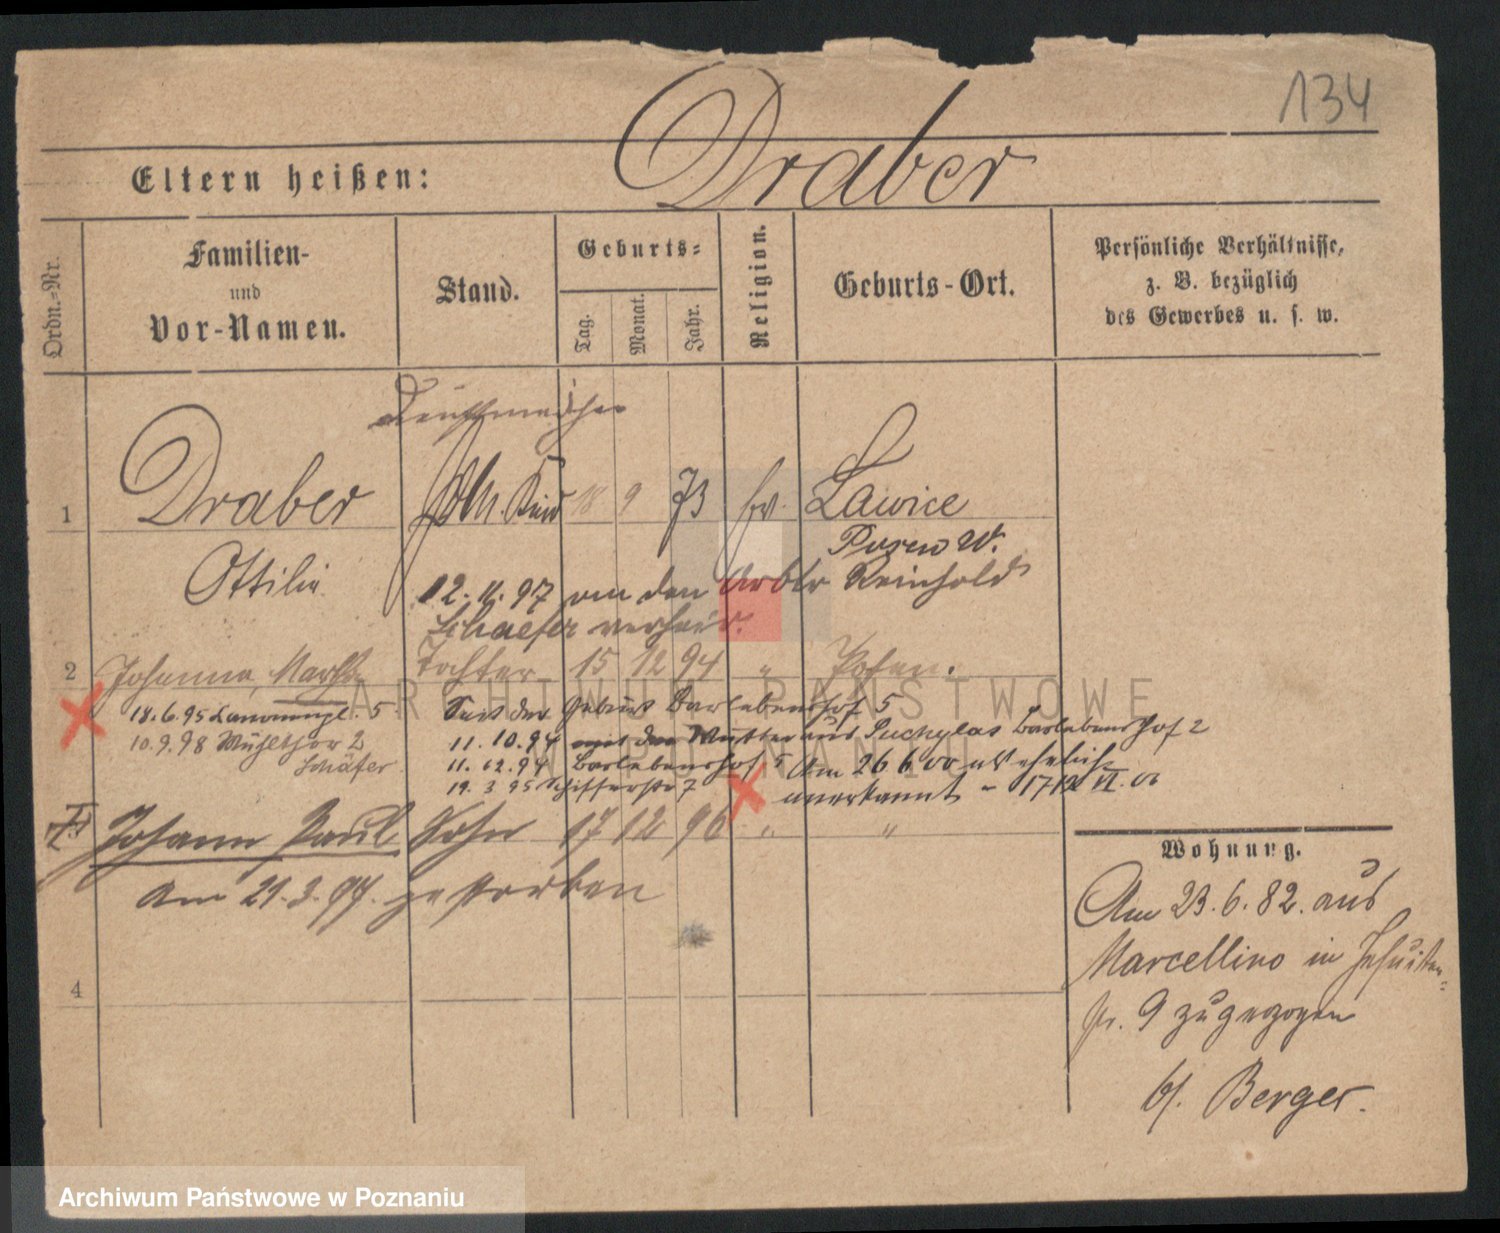 134
Eltern heißen: Draber
Ordn.-Nr.
Familien-
und
Vor-Namen.
Stand.
Geburts-
Tag.
Monat.
Jahr.
Religion.
Geburts-Ort.
Persönliche Verhältnisse,
z. B. bezüglich
des Gewerbes u. s. w.
1 Draber 18 9 73 Lawice
Ottilie
Posen W.
12. 11. 97 von den Arbtr Reinhold
Schaefer verheir.
2 Johanna, Martha Tochter 15 12 94 " Posen.
18.6.95 5
10.9.98 Mühlthor 2
Schäfer
Seit der Geburt Barlebenshof 5
11.10.94 mit der Mutter aus Suchylas Barlebenshof 2
11.12.94 Barlebenshof 5
19.3.95 Schifferstr 7
Am 26 6 00 als ehelich
anerkannt
Johann Paul Sohn 17 12 96 " "
Am 21.3.97. gestorben
4
Wohnung.
Am 23.6.82. aus
Marcellino in Jesuiten-
str. 9 zugezogen
b/. Berger.
ARCHIWUM PAŃSTWOWE
W POZNANIU
Archiwum Państwowe w Poznaniu